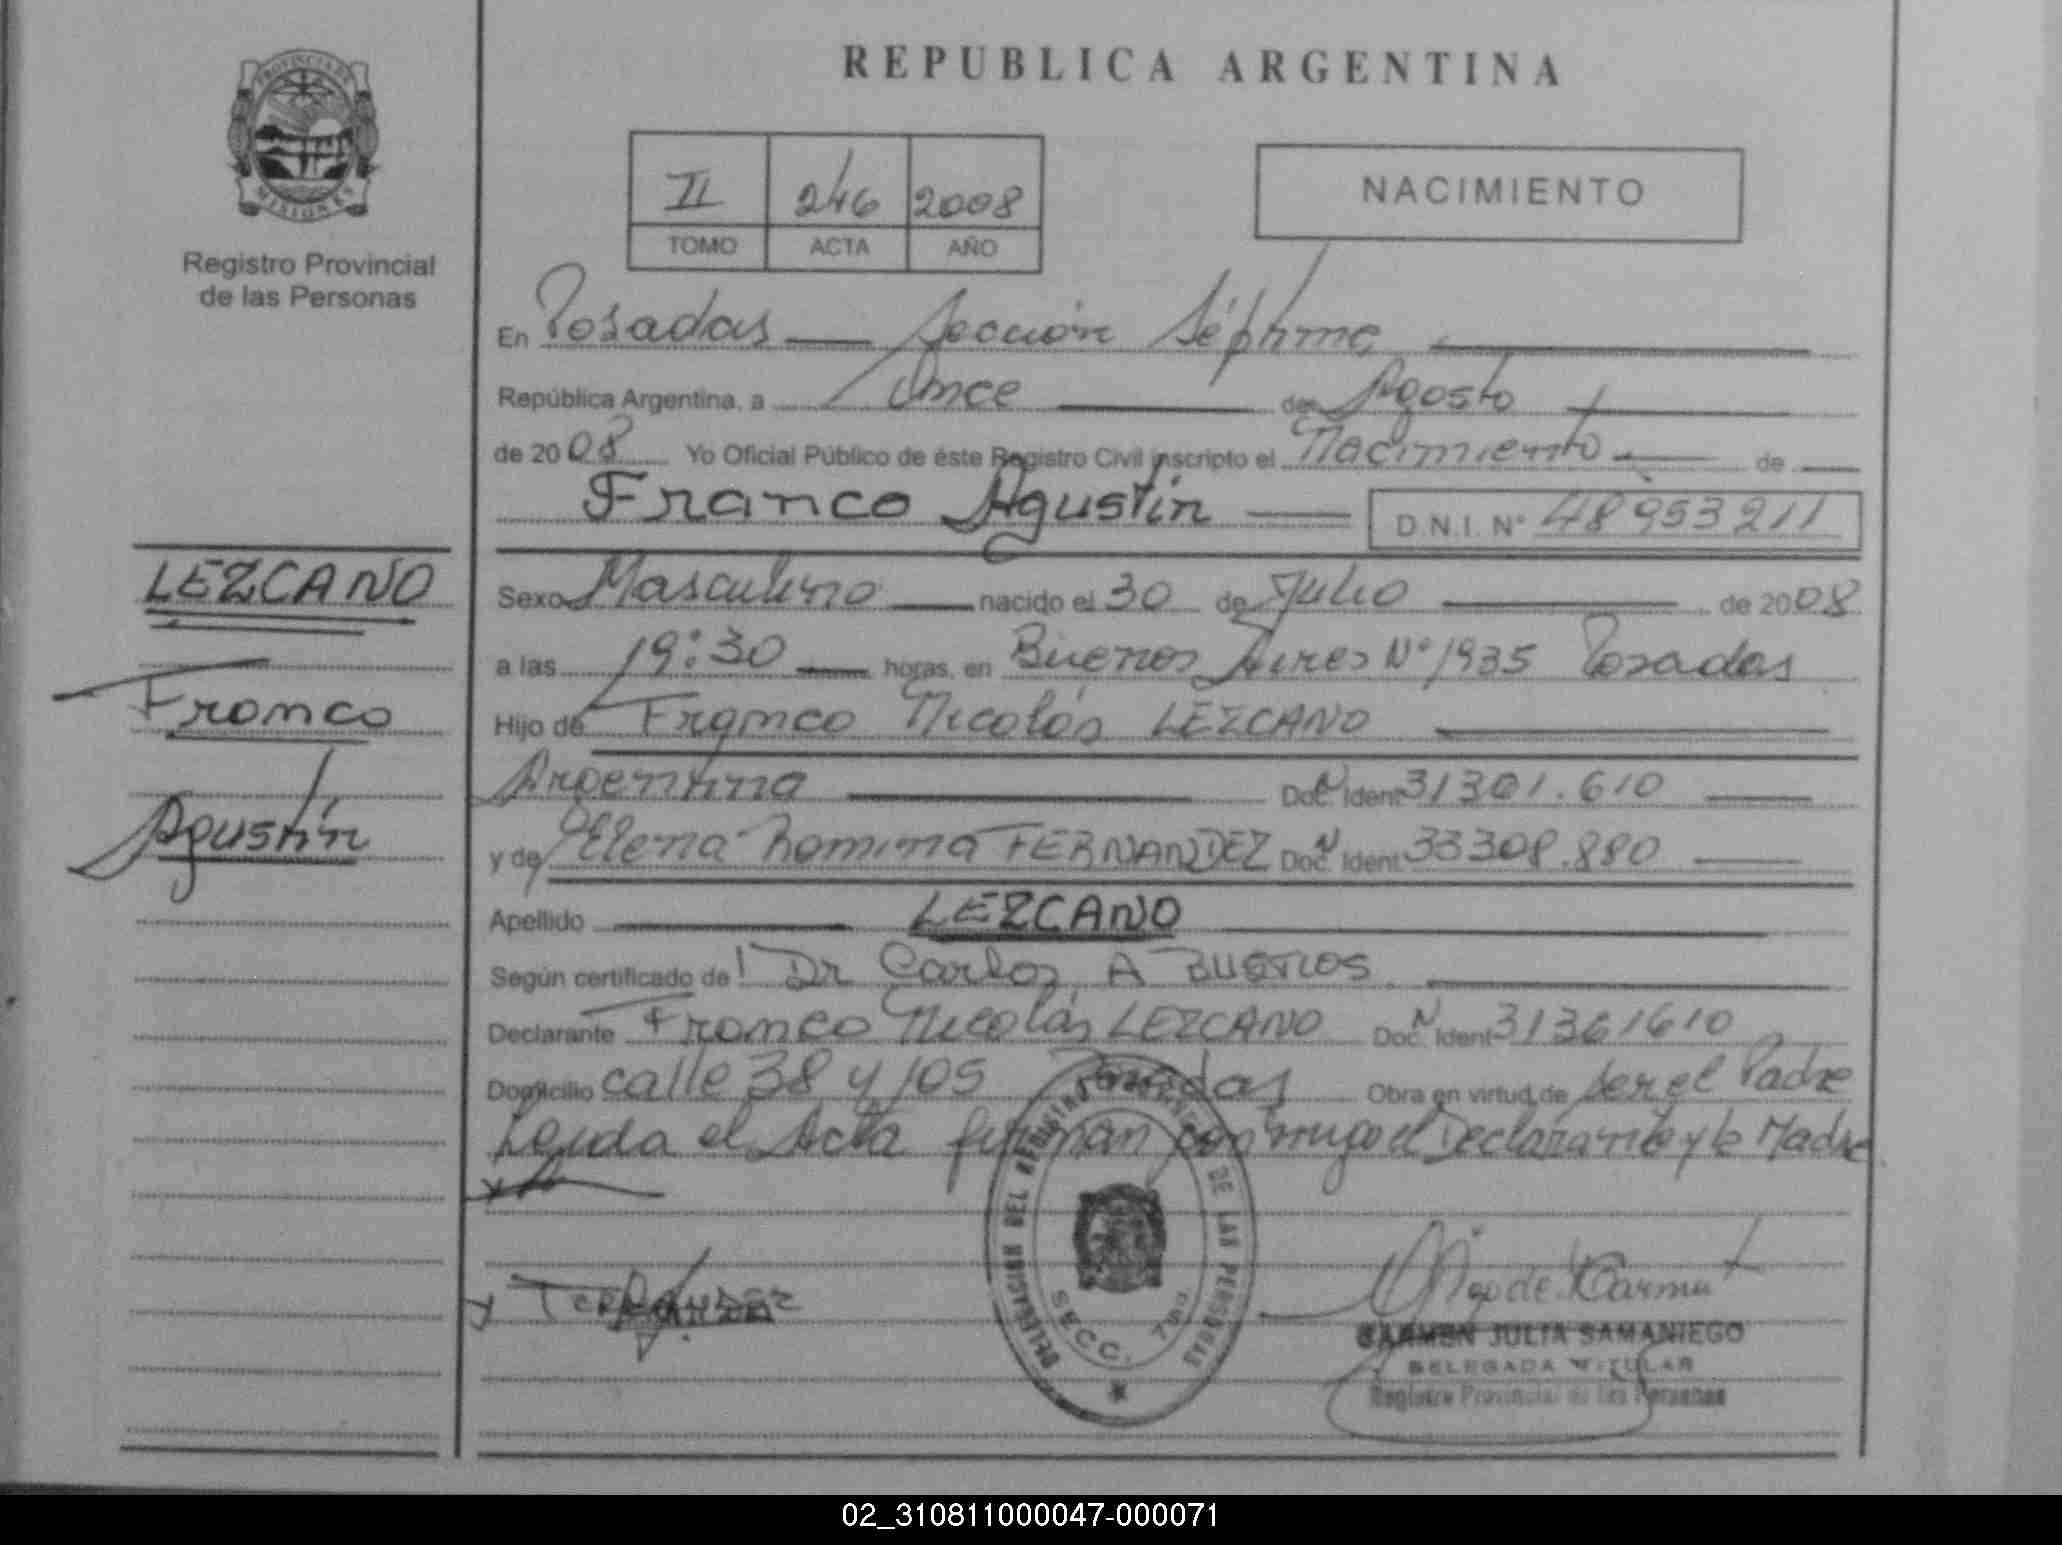 PROVINCIA DE
MISIONES
Registro Provincial
de las Personas
LEZCANO
Franco
Agustín
REPUBLICA ARGENTINA
II 246 2008
TOMO ACTA AÑO
NACIMIENTO
En Posadas Sección Séptima
República Argentina, a Once de Agosto
de 2008 Yo Oficial Público de éste Registro Civil inscripto el Nacimiento de
Franco Agustín D.N.I. Nº 48953211
Sexo Masculino nacido el 30 de Julio de 2008
a las 19:30 horas, en Buenos Aires Nº 1935 Posadas
Hijo de Franco Nicolás LEZCANO
Argentina Doc. Ident 31361.610
y de Elena Romina FERNANDEZ Doc. Ident 33308.880
Apellido LEZCANO
Según certificado de Dr Carlos A
Declarante Franco Nicolás LEZCANO Doc. Ident 31361610
Domicilio calle 38 y 105 Posadas Obra en virtud de ser el Padre
Leida el Acta firman conmigo el Declarante y la Madre
DELEGACION DEL REGISTRO PROVINCIAL DE LAS PERSONAS
SECC. 7ma.
CARMEN JULIA SAMANIEGO
DELEGADA TITULAR
Registro Provincial de las Personas
02_310811000047-000071